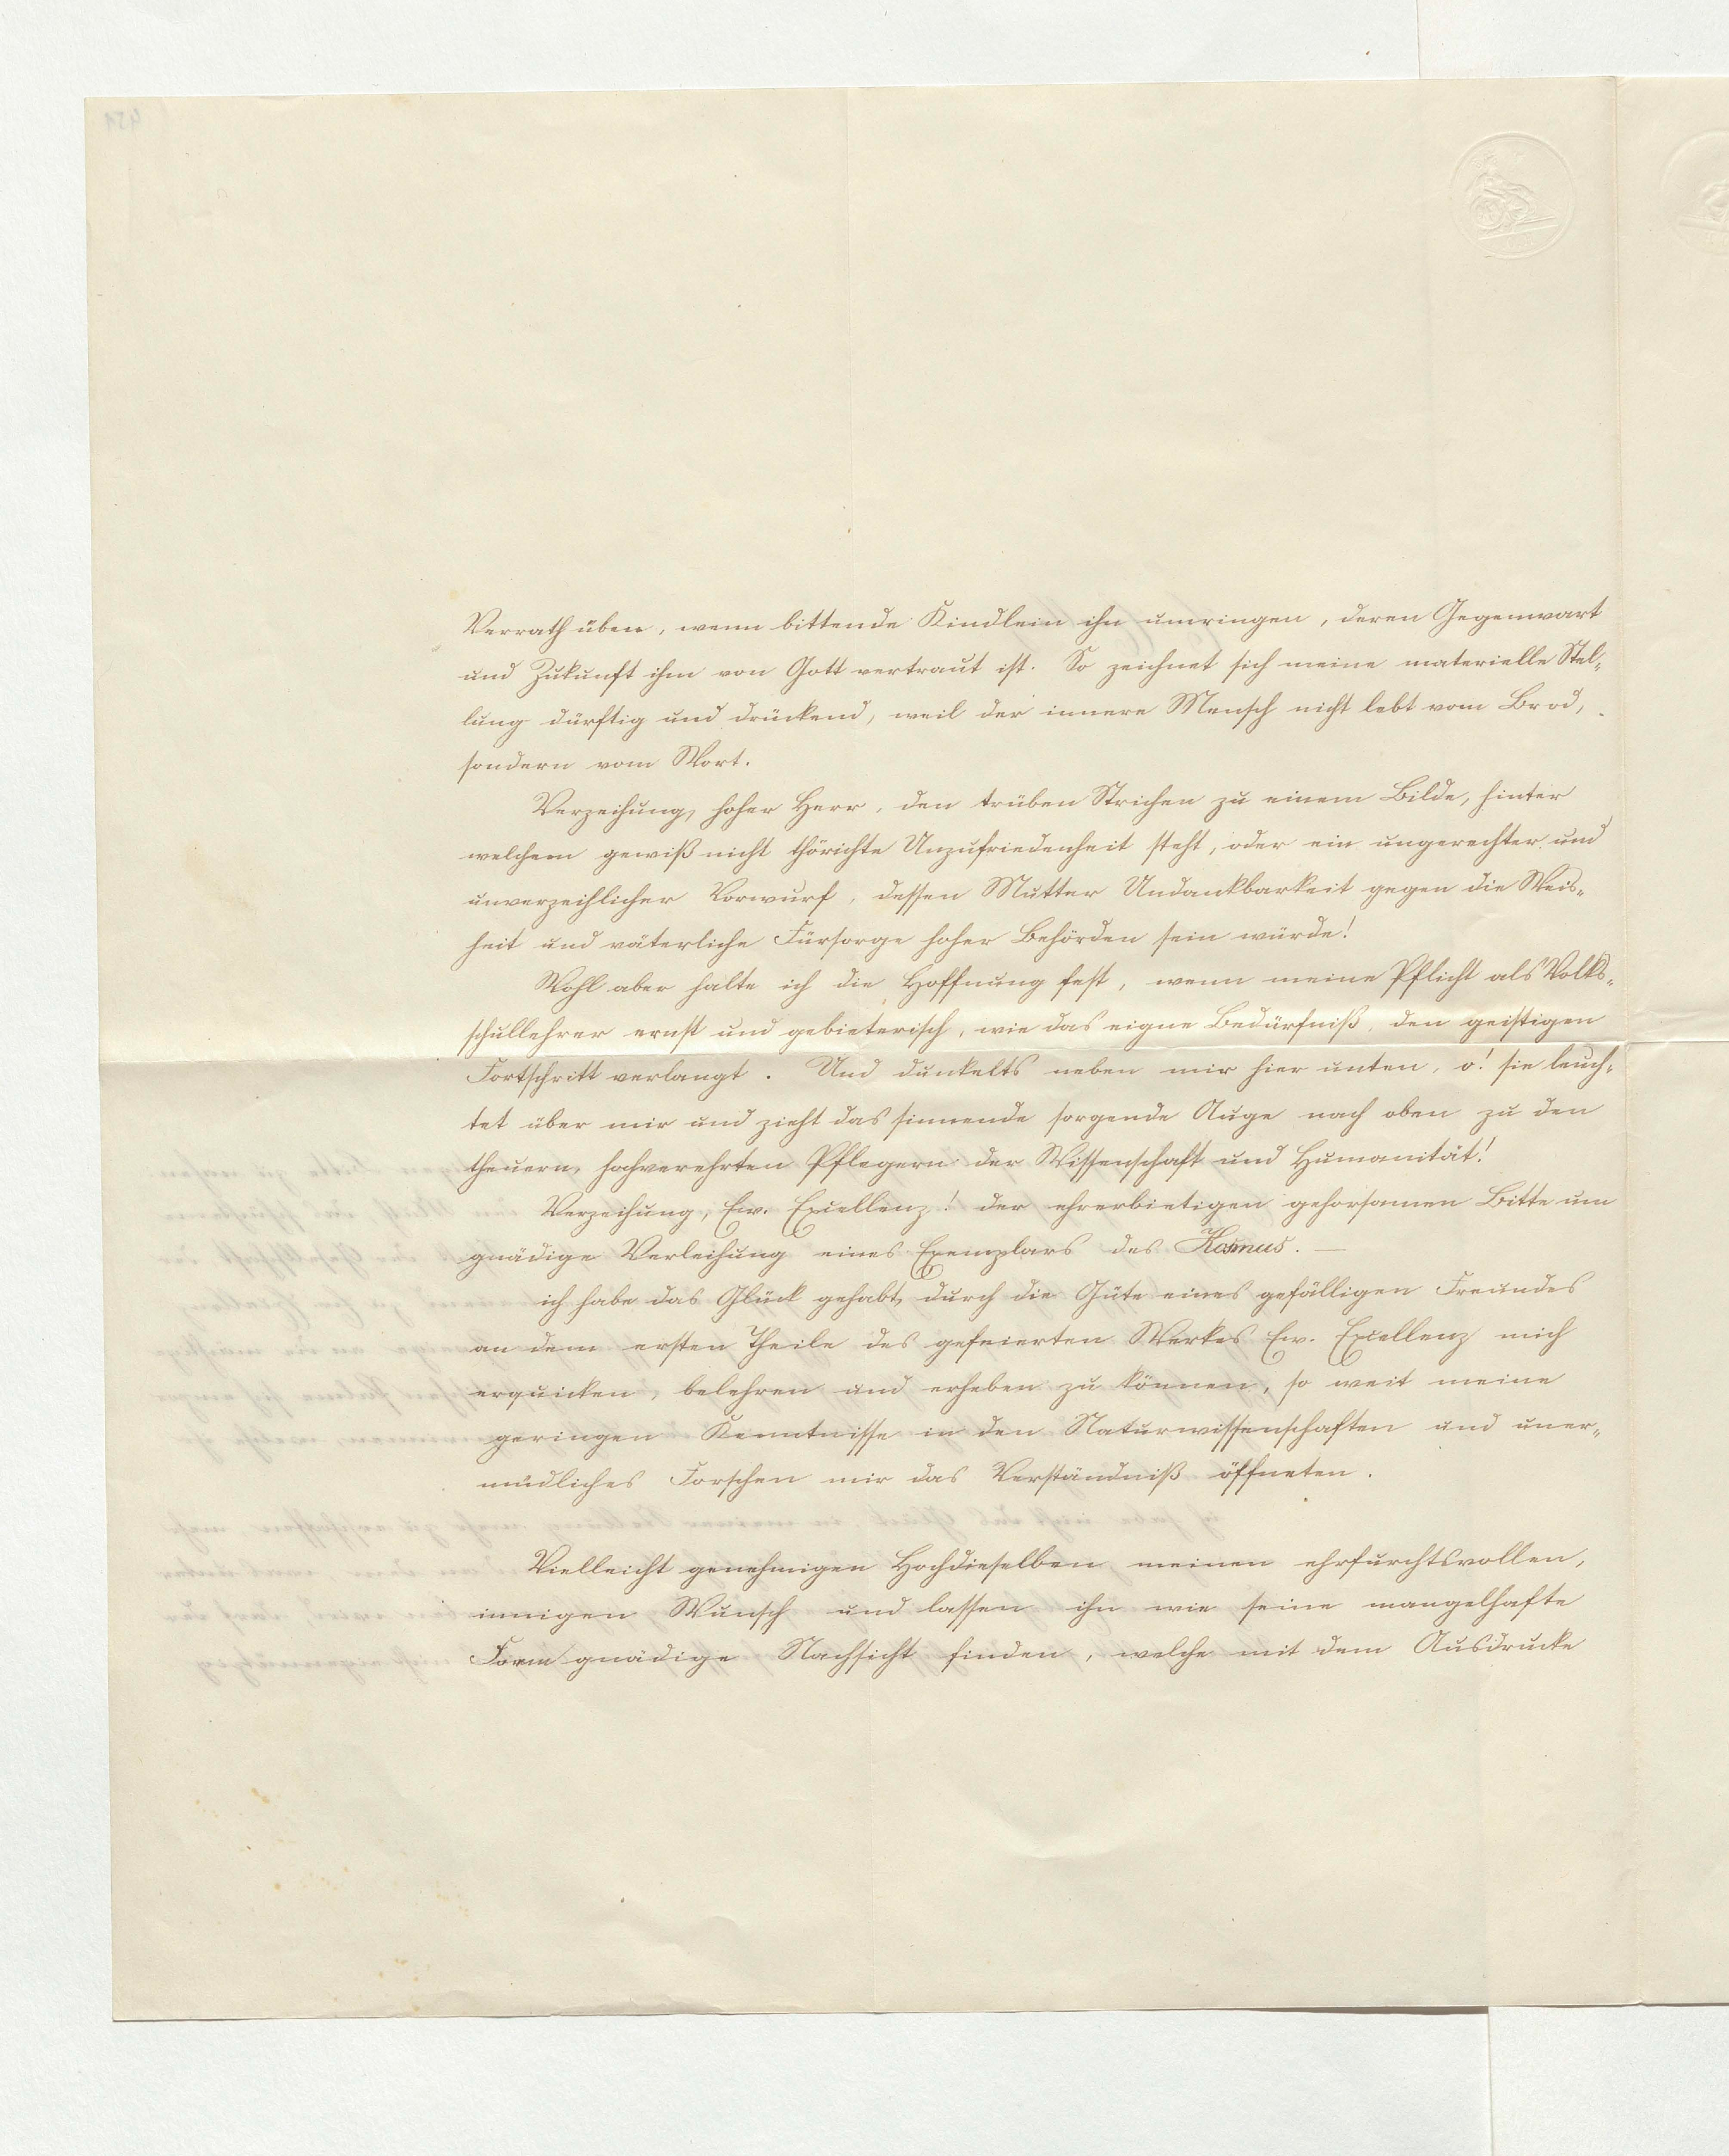 Verrath üben, wenn bittende Kindlein ihn umringen, deren Gegenwart
und Zukunft ihm von Gott vertraut ist. So zeichnet sich meine materielle Stel-
lung dürftig und drückend, weil der innere Mensch nicht lebt vom Brod,
sondern vom Wort.
Verzeihung, hoher Herr, den trüben Strichen zu einem Bilde, hinter
welchem gewiß nicht thörichte Unzufriedenheit steht, oder ein ungerechter und
unverzeihlicher Vorwurf, dessen Mutter Undankbarkeit gegen die Weis-
heit und väterliche Fürsorge hoher Behörden sein würde!
Wohl aber halte ich die Hoffnung fest, wenn meine Pflicht als Volks-
schullehrer ernst und gebieterisch, wie das eigne Bedürfniß, den geistigen
Fortschritt verlangt. Und dunkelts neben mir hier unten, o! sie leuch-
tet über mir und zieht das sinnende sorgende Auge nach oben zu den
theuern, hochverehrten Pflegern der Wissenschaft und Humanität!
Verzeihung, Ew. Excellenz! der ehrerbietigen gehorsamen Bitte um
gnädige Verleihung eines Exemplars des Kosmus. —
ich habe das Glück gehabt, durch die Güte eines gefälligen Freundes
an dem ersten Theile des gefeierten Werkes Ew. Excellenz mich
erquicken, belehren und erheben zu können, so weit meine
geringen Kenntnisse in den Naturwissenschaften und uner-
müdliches Forschen mir das Verständniß öffneten.
Vielleicht genehmigen Hochdieselben meinen ehrfurchtsvollen,
innigen Wunsch und lassen ihn wie seine mangelhafte
Form gnädige Nachsicht finden, welche mit dem Ausdrucke